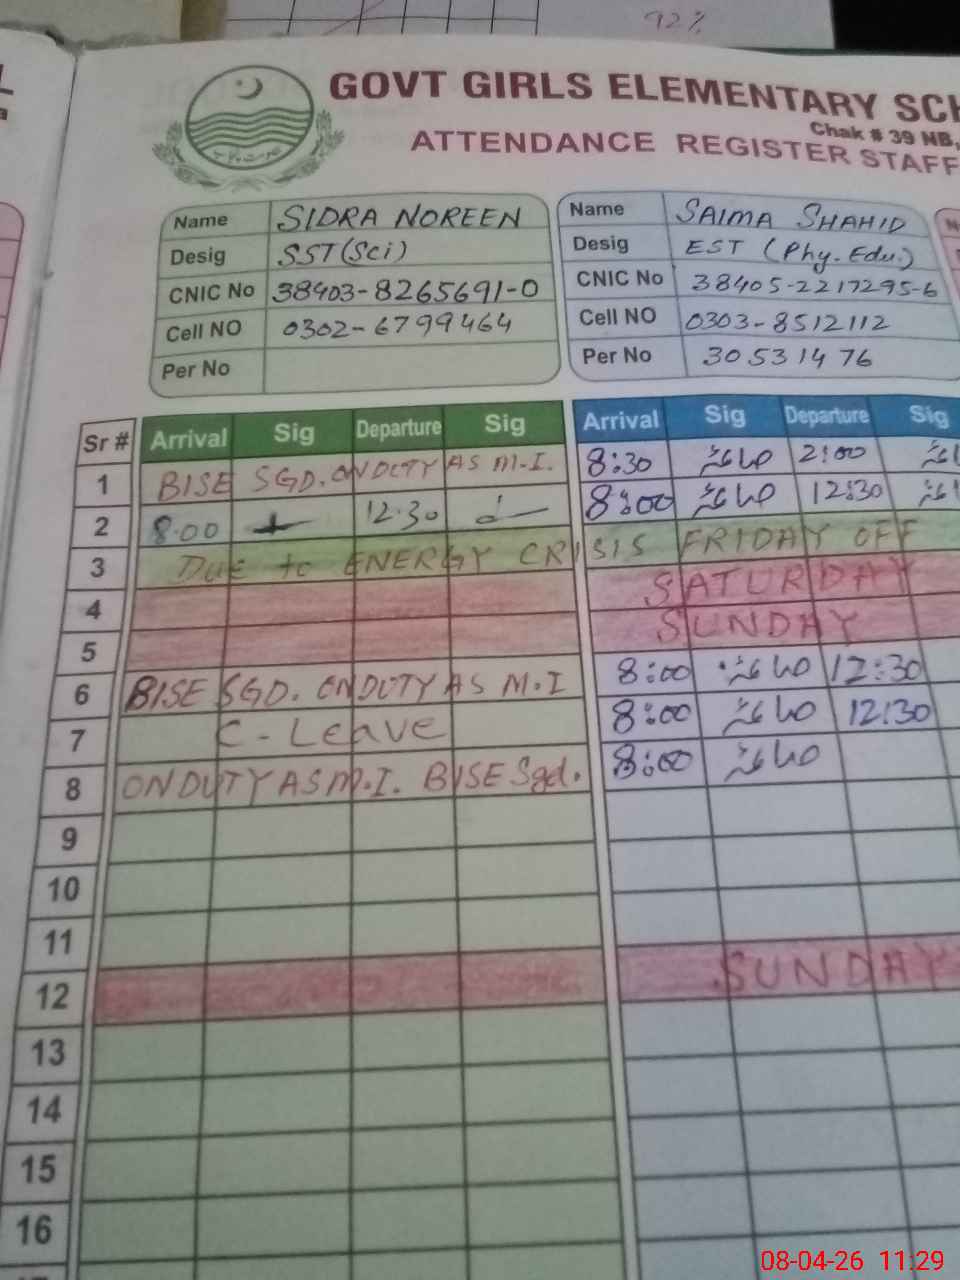 92%
GOVT GIRLS ELEMENTARY SCH
Chak # 39 NB,
ATTENDANCE REGISTER STAFF
Name SIDRA NOREEN
Desig SST (Sci)
CNIC No 38403-8265691-0
Cell NO 0302-6799464
Per No
Name SAIMA SHAHID
Desig EST (Phy. Edu.)
CNIC No 38405-2217295-6
Cell NO 0303-8512112
Per No 30531476
Sr # Arrival Sig Departure Sig Arrival Sig Departure Sig
1 BISE SGD. ON DUTY AS M.I. 8:30 صائمہ 2:00
2 8.00 12.30 8:00 صائمہ 12:30
3 DUE to ENERGY CRISIS FRIDAY OFF
4 SATURDAY
5 SUNDAY
6 BISE SGD. ON DUTY AS M.I 8:00 صائمہ 12:30
7 C-Leave 8:00 صائمہ 12:30
8 ON DUTY AS M.I. BISE Sgd. 8:00 صائمہ
9
10
11
12 SUNDAY
13
14
15
16
08-04-26 11:29